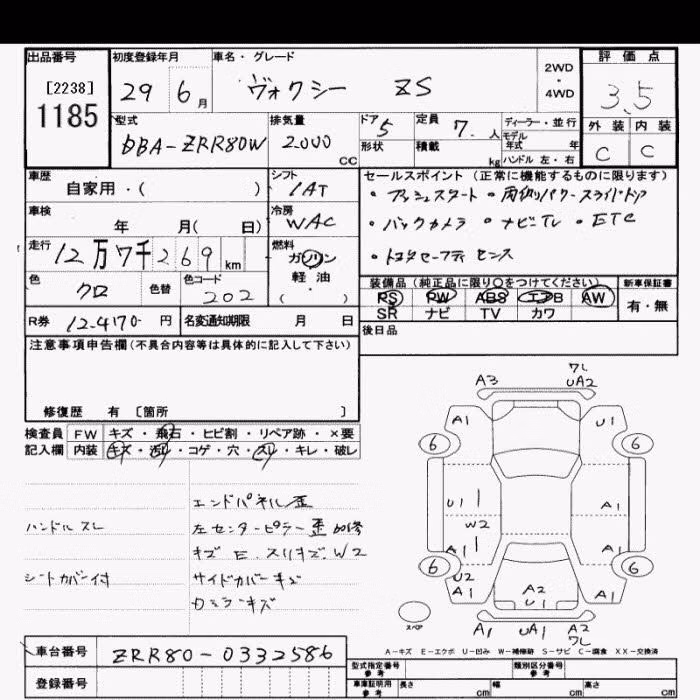 出品番号 初度登録年月 車名・グレード 評価点
[2238] 29年 6月 ヴォクシー ZS 2WD・4WD 3.5
1185 型式 排気量 ドア 定員 ディーラー・並行 外装 内装
DBA-ZRR80W 2000 CC 5 7.人 モデル年式 年
形状 積載 kg ハンドル 左・右 C C
車歴 シフト セールスポイント(正常に機能するものに限ります)
自家用・( ) IAT ・プッシュスタート ・両側パワースライドドア
車検 冷房 ・バックカメラ ・ナビTV ・ETC
年 月( 日) WAC
走行 燃料 ・トヨタセーフティセンス
12万7千269 km ガソリン 軽油 ( )
色 色替 色コード 装備品(純正品に限り○をつけてください) 新車保証書
クロ 202 PS PW ABS エアB AW 有・無
SR ナビ TV カワ
R券 12,4170-円 名変通知期限 月 日 後日品
注意事項申告欄(不具合内容等は具体的に記入して下さい)
修復歴 有 [箇所 ]
検査員 FW キズ・飛石・ヒビ割・リペア跡・×要
記入欄 内装 キズ・汚レ・コゲ・穴・スレ・キレ・破レ
エンドパネル歪
ハンドルスレ 左センターピラー歪 加修
キズ E. スリキズ. W2
シートカバー付 サイドカバーキズ
A3 ワレ UA2
A1 U1
6 6
U1 A1
W2
A1 A1
6 6
U2
A1 A2 A1
U1
スペア A1 UA1 A2
ワレ
A-キズ E-エクボ U-凹み W-補修跡 S-サビ C-腐食 XX-交換済
車台番号 ZRR80-0332586 型式指定番号 参考 類別区分番号 参考
登録番号 車庫証明用 参考 長さ cm 幅 cm 高さ cm